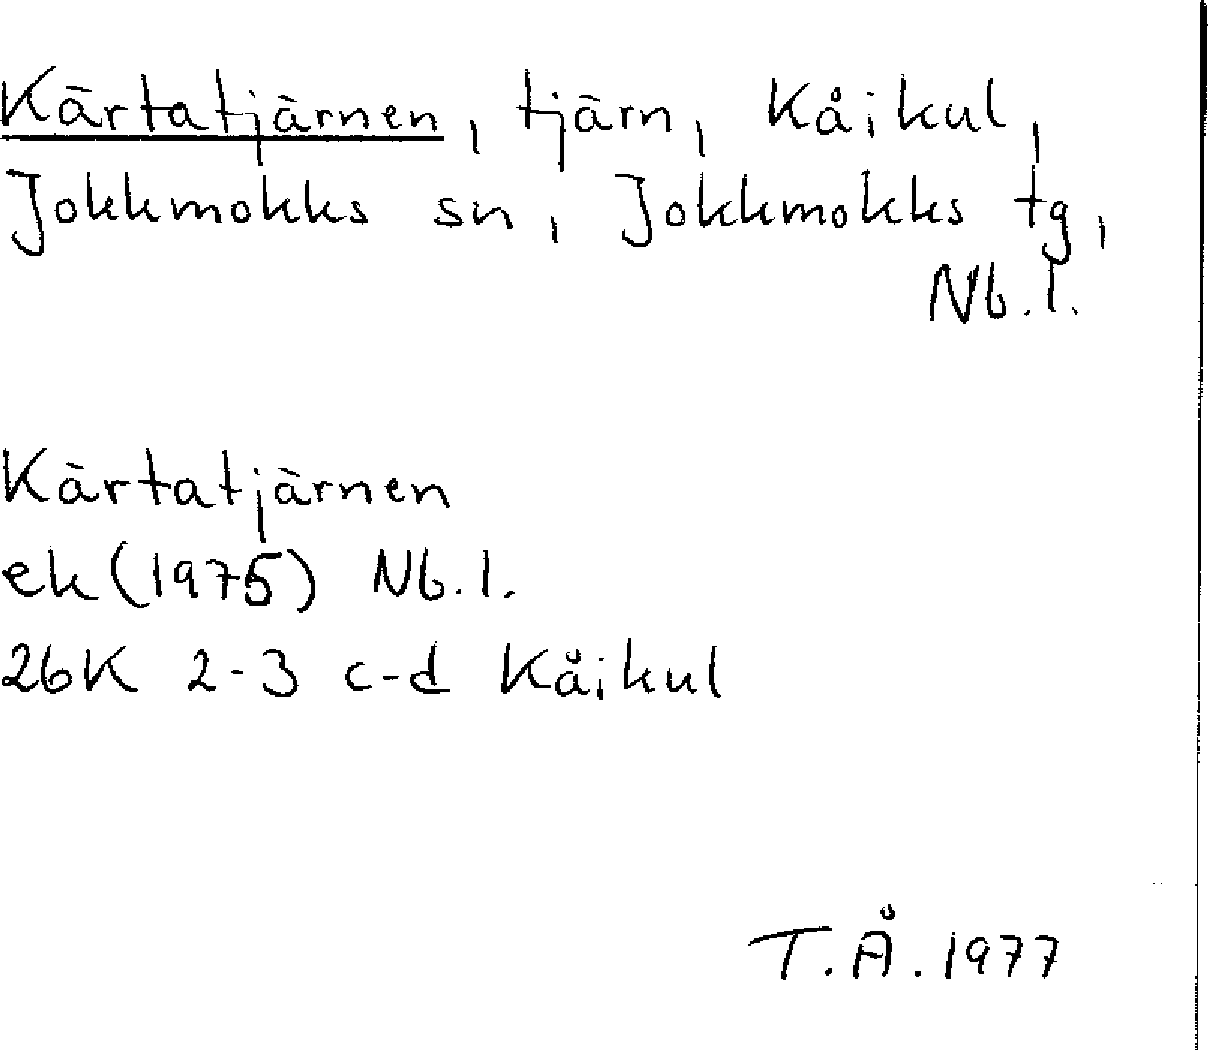 Kärtatjärnen, tjärn, Kåikul,
Jokkmokks sn, Jokkmokks tg,
Nb.l.
Kärtatjärnen
ek (1975) Nb.l.
26K 2-3 c-d Kåikul
T.Å. 1977